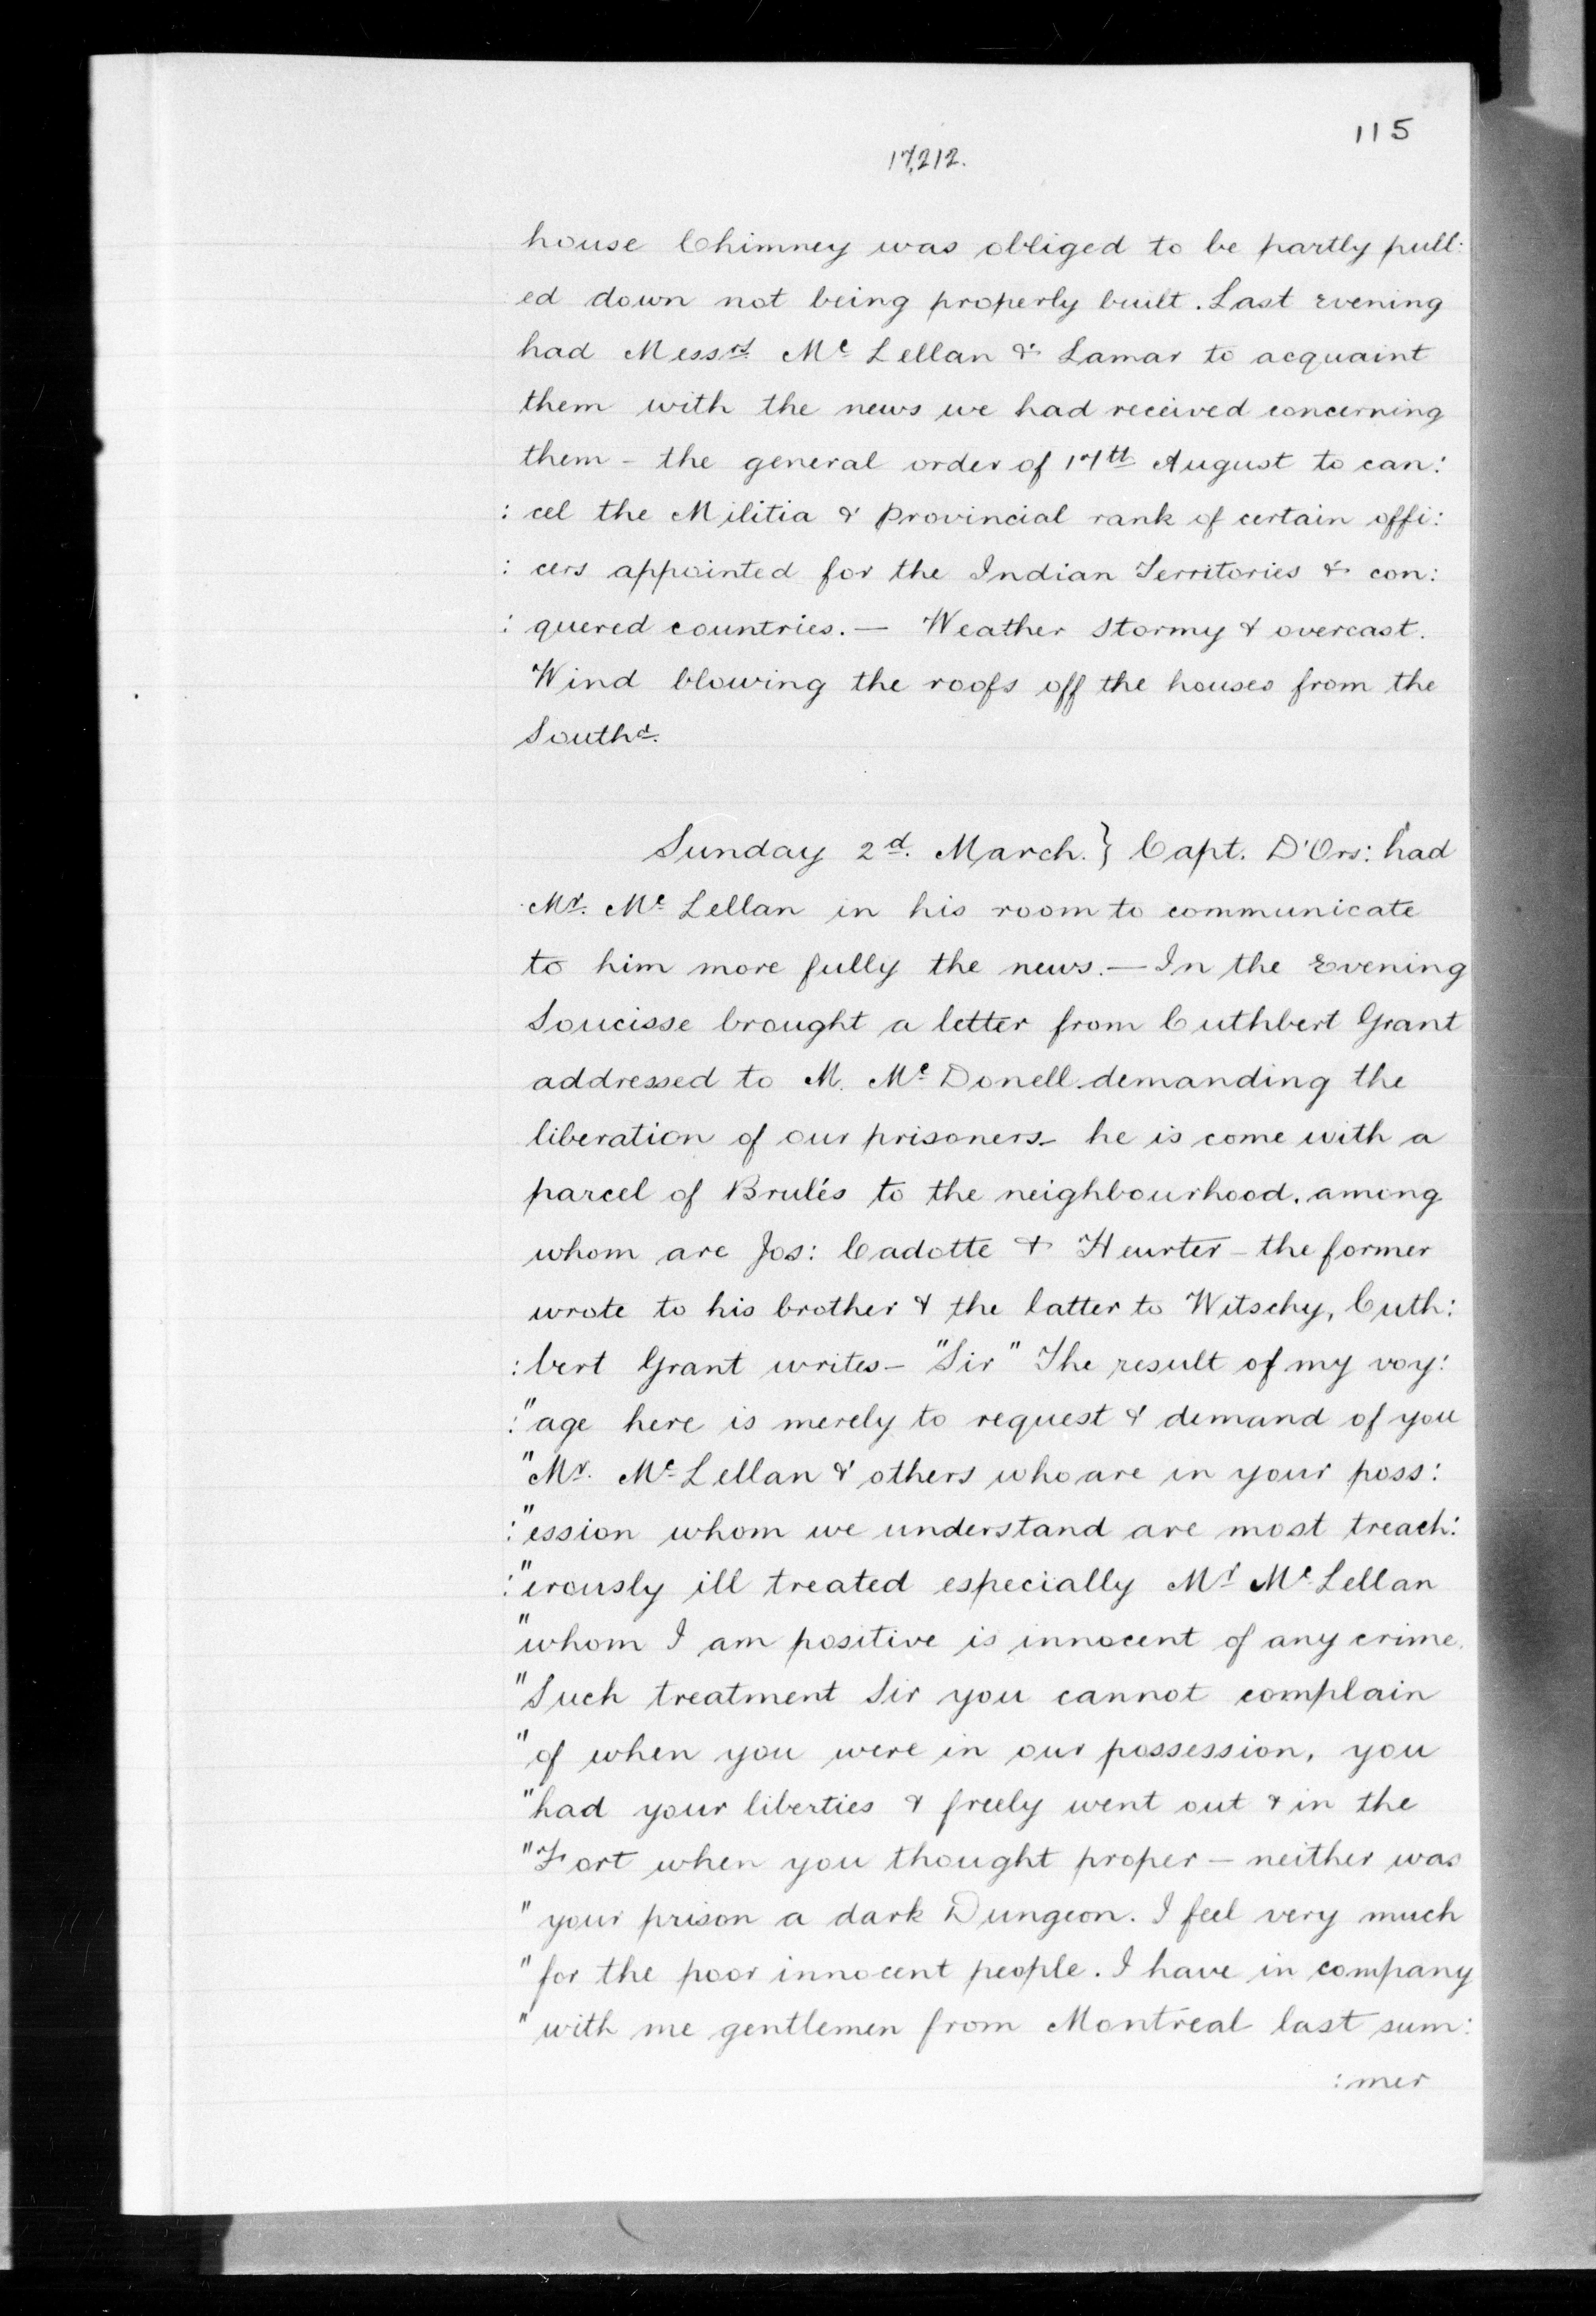 115
17,212.
house Chimney was obliged to be partly pull:
ed down not being properly built. Last Evening
had Messrs. Mc Lellan & Lamar to acquaint
them with the news we had received concerning
them - the general order of 17th August to can:
: cel the Militia & Provincial rank of certain offi:
: cers appointed for the Indian Territories & con:
: quered countries. — Weather Stormy & overcast.
Wind blowing the roofs off the houses from the
Southd.
Sunday 2d. March. } Capt. D'Ors: had
Mr. Mc Lellan in his room to communicate
to him more fully the news. — In the Evening
Soucisse brought a letter from Cuthbert Grant
addressed to M. Mc Donell demanding the
liberation of our prisoners - he is come with a
parcel of Brulés to the neighbourhood. among
whom are Jos: Cadotte & Heurter - the former
wrote to his brother & the latter to Witschy, Cuth:
: bert Grant writes - "Sir" The result of my voy:
:"age here is merely to request & demand of you
"Mr. Mc Lellan & others who are in your poss:
:"ession whom we understand are most treach:
:"erously ill treated especially Mr Mc Lellan
"whom I am positive is innocent of any crime.
"Such treatment Sir you cannot complain
"of when you were in our possession, you
"had your liberties & freely went out & in the
"Fort when you thought proper — neither was
"your prison a dark Dungeon. I feel very much
"for the poor innocent people. I have in company
"with me gentlemen from Montreal last sum:
: mer